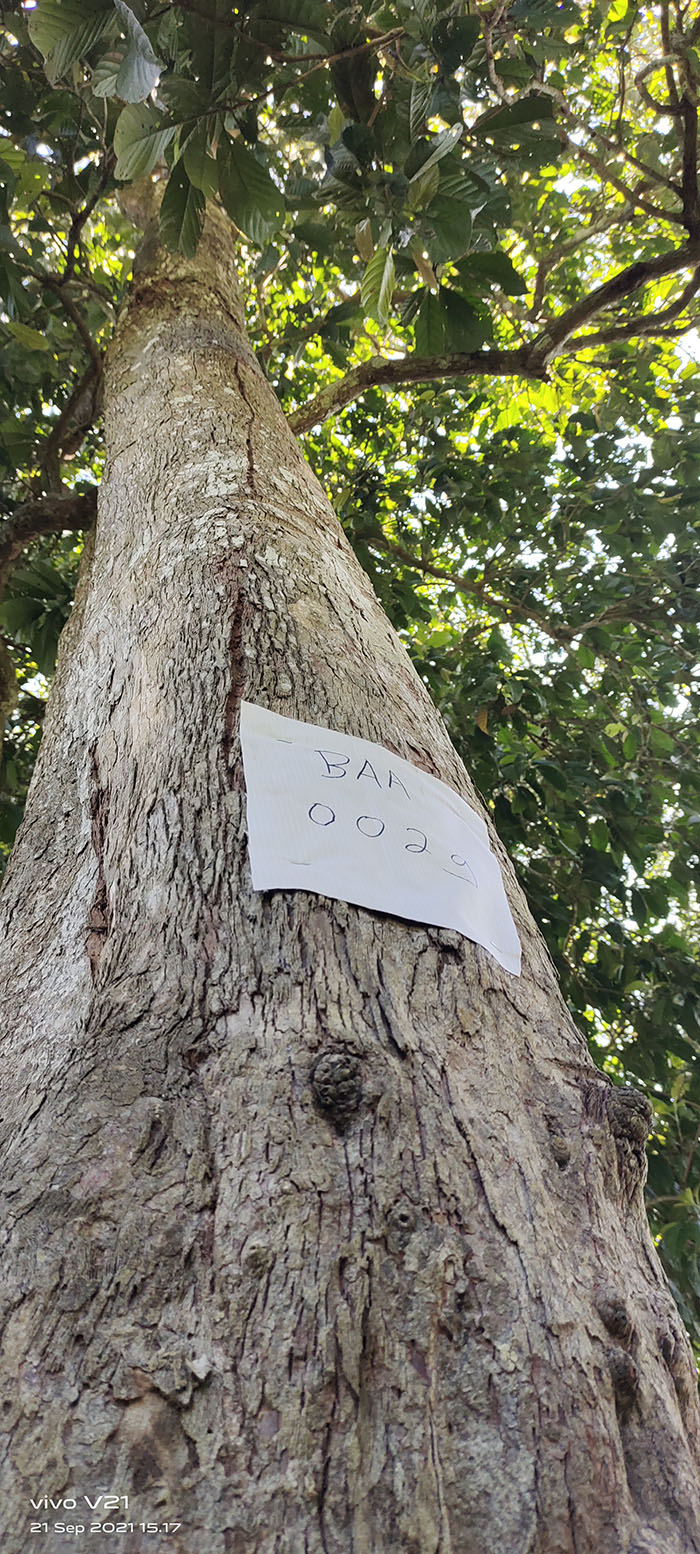 BAA
0029
vivo V21
21 Sep 2021 15.17